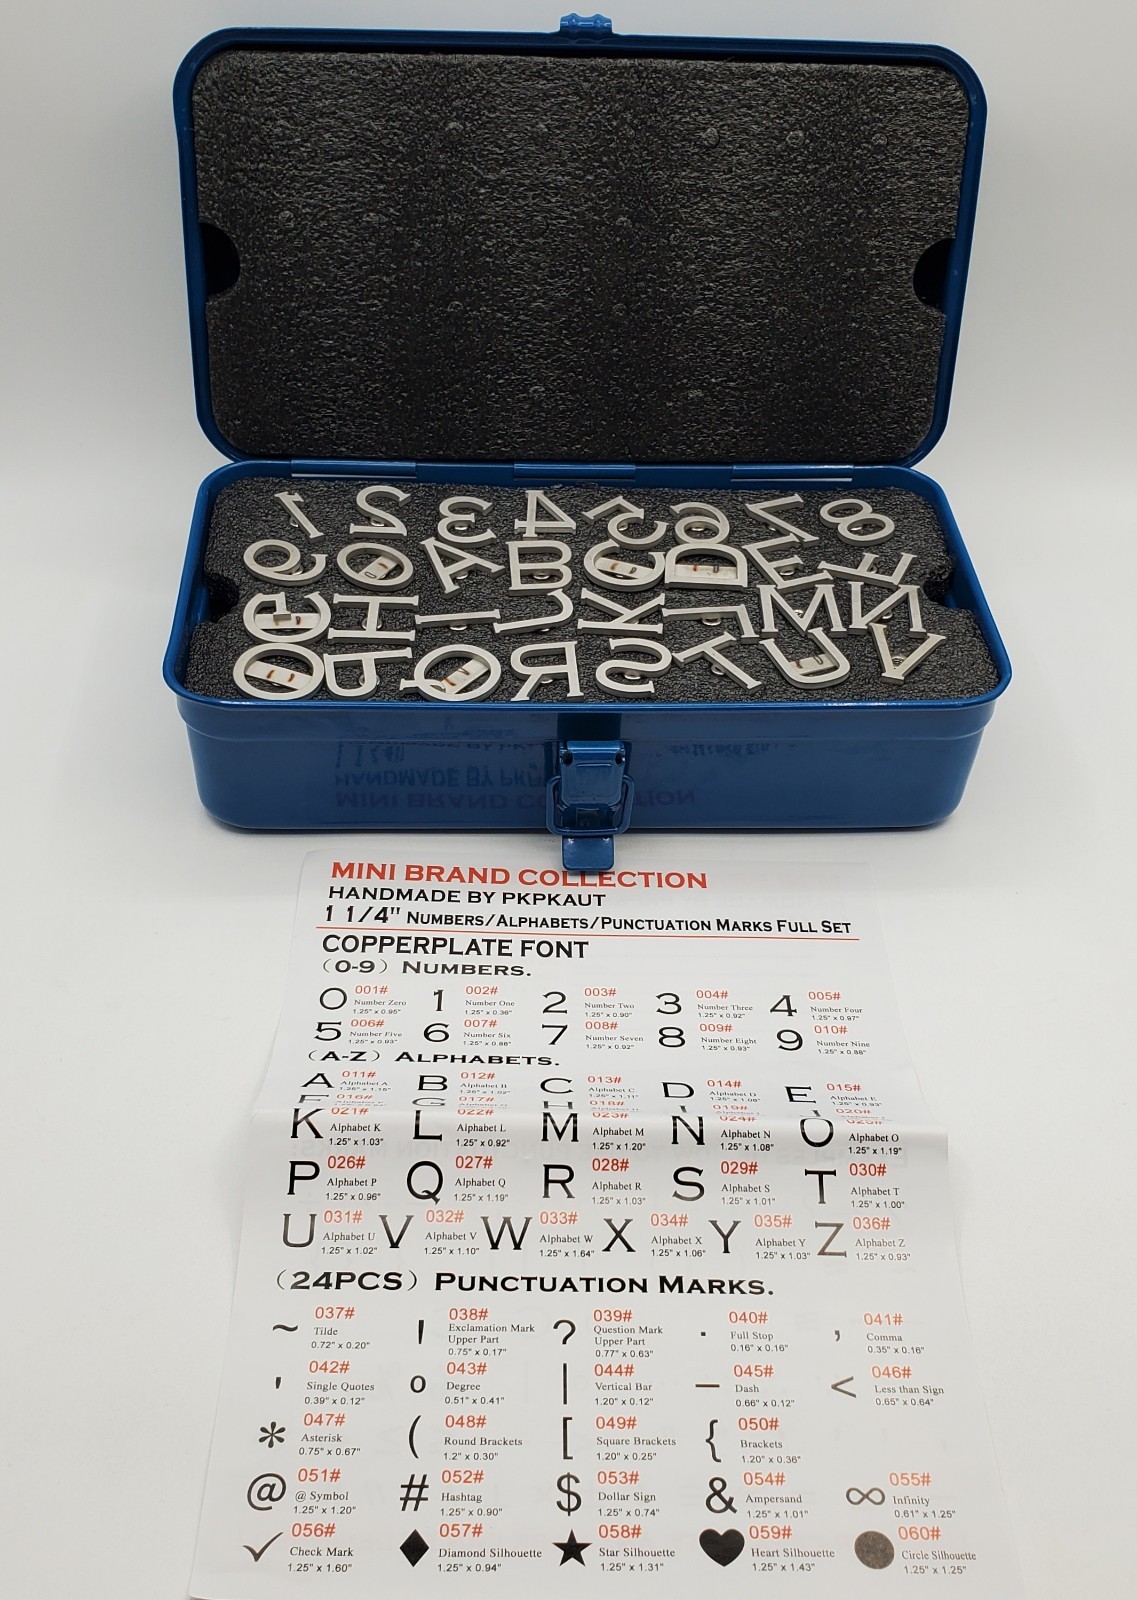 1 2 3 4 5 6 7 8
9 0 A B C D E F
G H I J K L M N
O P Q R S T U V
MINI BRAND COLLECTION
HANDMADE BY PKPKAUT
1 1/4" NUMBERS/ALPHABETS/PUNCTUATION MARKS FULL SET
COPPERPLATE FONT
(0-9) NUMBERS.
0 001# 1 002# 2 003# 3 004# 4 005#
Number Zero Number One Number Two Number Three Number Four
1.25" x 0.95" 1.25" x 0.36" 1.25" x 0.90" 1.25" x 0.92" 1.25" x 0.97"
5 006# 6 007# 7 008# 8 009# 9 010#
Number Five Number Six Number Seven Number Eight Number Nine
1.25" x 0.93" 1.25" x 0.88" 1.25" x 0.92" 1.25" x 0.93" 1.25" x 0.88"
(A-Z) ALPHABETS.
A 011# B 012# C 013# D 014# E 015#
Alphabet A Alphabet B Alphabet C Alphabet D Alphabet E
016# 017# 018# 019# 020#
K 021# L 022# M 023# N 024# O 025#
Alphabet K Alphabet L Alphabet M Alphabet N Alphabet O
1.25" x 1.03" 1.25" x 0.92" 1.25" x 1.20" 1.25" x 1.08" 1.25" x 1.19"
P 026# Q 027# R 028# S 029# T 030#
Alphabet P Alphabet Q Alphabet R Alphabet S Alphabet T
1.25" x 0.96" 1.25" x 1.19" 1.25" x 1.03" 1.25" x 1.01" 1.25" x 1.00"
U 031# V 032# W 033# X 034# Y 035# Z 036#
Alphabet U Alphabet V Alphabet W Alphabet X Alphabet Y Alphabet Z
1.25" x 1.02" 1.25" x 1.10" 1.25" x 1.64" 1.25" x 1.06" 1.25" x 1.03" 1.25" x 0.93"
(24PCS) PUNCTUATION MARKS.
~ 037# ! 038# ? 039# . 040# , 041#
Tilde Exclamation Mark Question Mark Full Stop Comma
Upper Part Upper Part
0.72" x 0.20" 0.75" x 0.17" 0.77" x 0.63" 0.16" x 0.16" 0.35" x 0.16"
' 042# o 043# | 044# – 045# < 046#
Single Quotes Degree Vertical Bar Dash Less than Sign
0.39" x 0.12" 0.51" x 0.41" 1.20" x 0.12" 0.66" x 0.12" 0.65" x 0.64"
* 047# ( 048# [ 049# { 050#
Asterisk Round Brackets Square Brackets Brackets
0.75" x 0.67" 1.2" x 0.30" 1.20" x 0.25" 1.20" x 0.36"
@ 051# # 052# $ 053# & 054# ∞ 055#
@ Symbol Hashtag Dollar Sign Ampersand Infinity
1.25" x 1.20" 1.25" x 0.90" 1.25" x 0.74" 1.25" x 1.01" 0.61" x 1.25"
✓ 056# ♦ 057# ★ 058# ♥ 059# ● 060#
Check Mark Diamond Silhouette Star Silhouette Heart Silhouette Circle Silhouette
1.25" x 1.60" 1.25" x 0.94" 1.25" x 1.31" 1.25" x 1.43" 1.25" x 1.25"